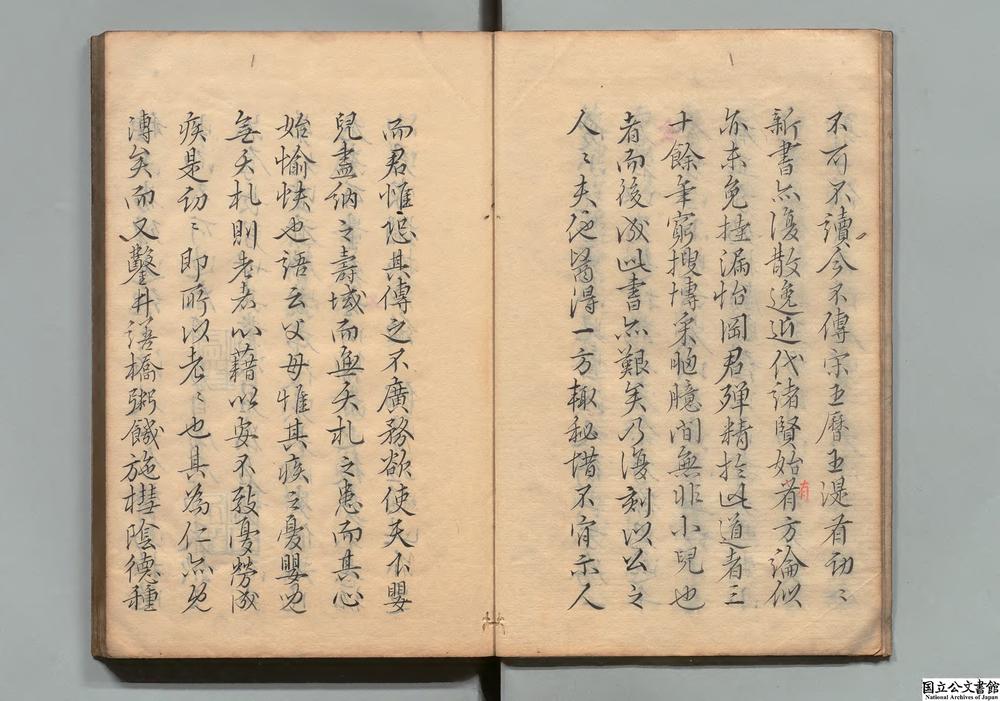 不可不讀今不傳宋王曆王湜有幼〻
新書亦復散逸近代諸賢始者方論似
有
亦未免挂漏怡岡君殫精於此道者三
十餘年窮搜博采胸臆間無非小兒也
者而後成此書亦艱矣乃復刻以公之
人〻夫術醫得一方輙秘惜不肯示人
而君惟恐其傳之不廣務欲使天下嬰
兒盡納之壽域而無夭札之患而其心
始愉快也語云父母惟其疾之憂嬰兒
無夭札則老老以藉以安不致憂勞成
疾是幼〻即所以老〻也其為仁亦已
溥矣而又鑿井語橋粥饑施槥陰德種
国立公文書館
National Archives of Japan